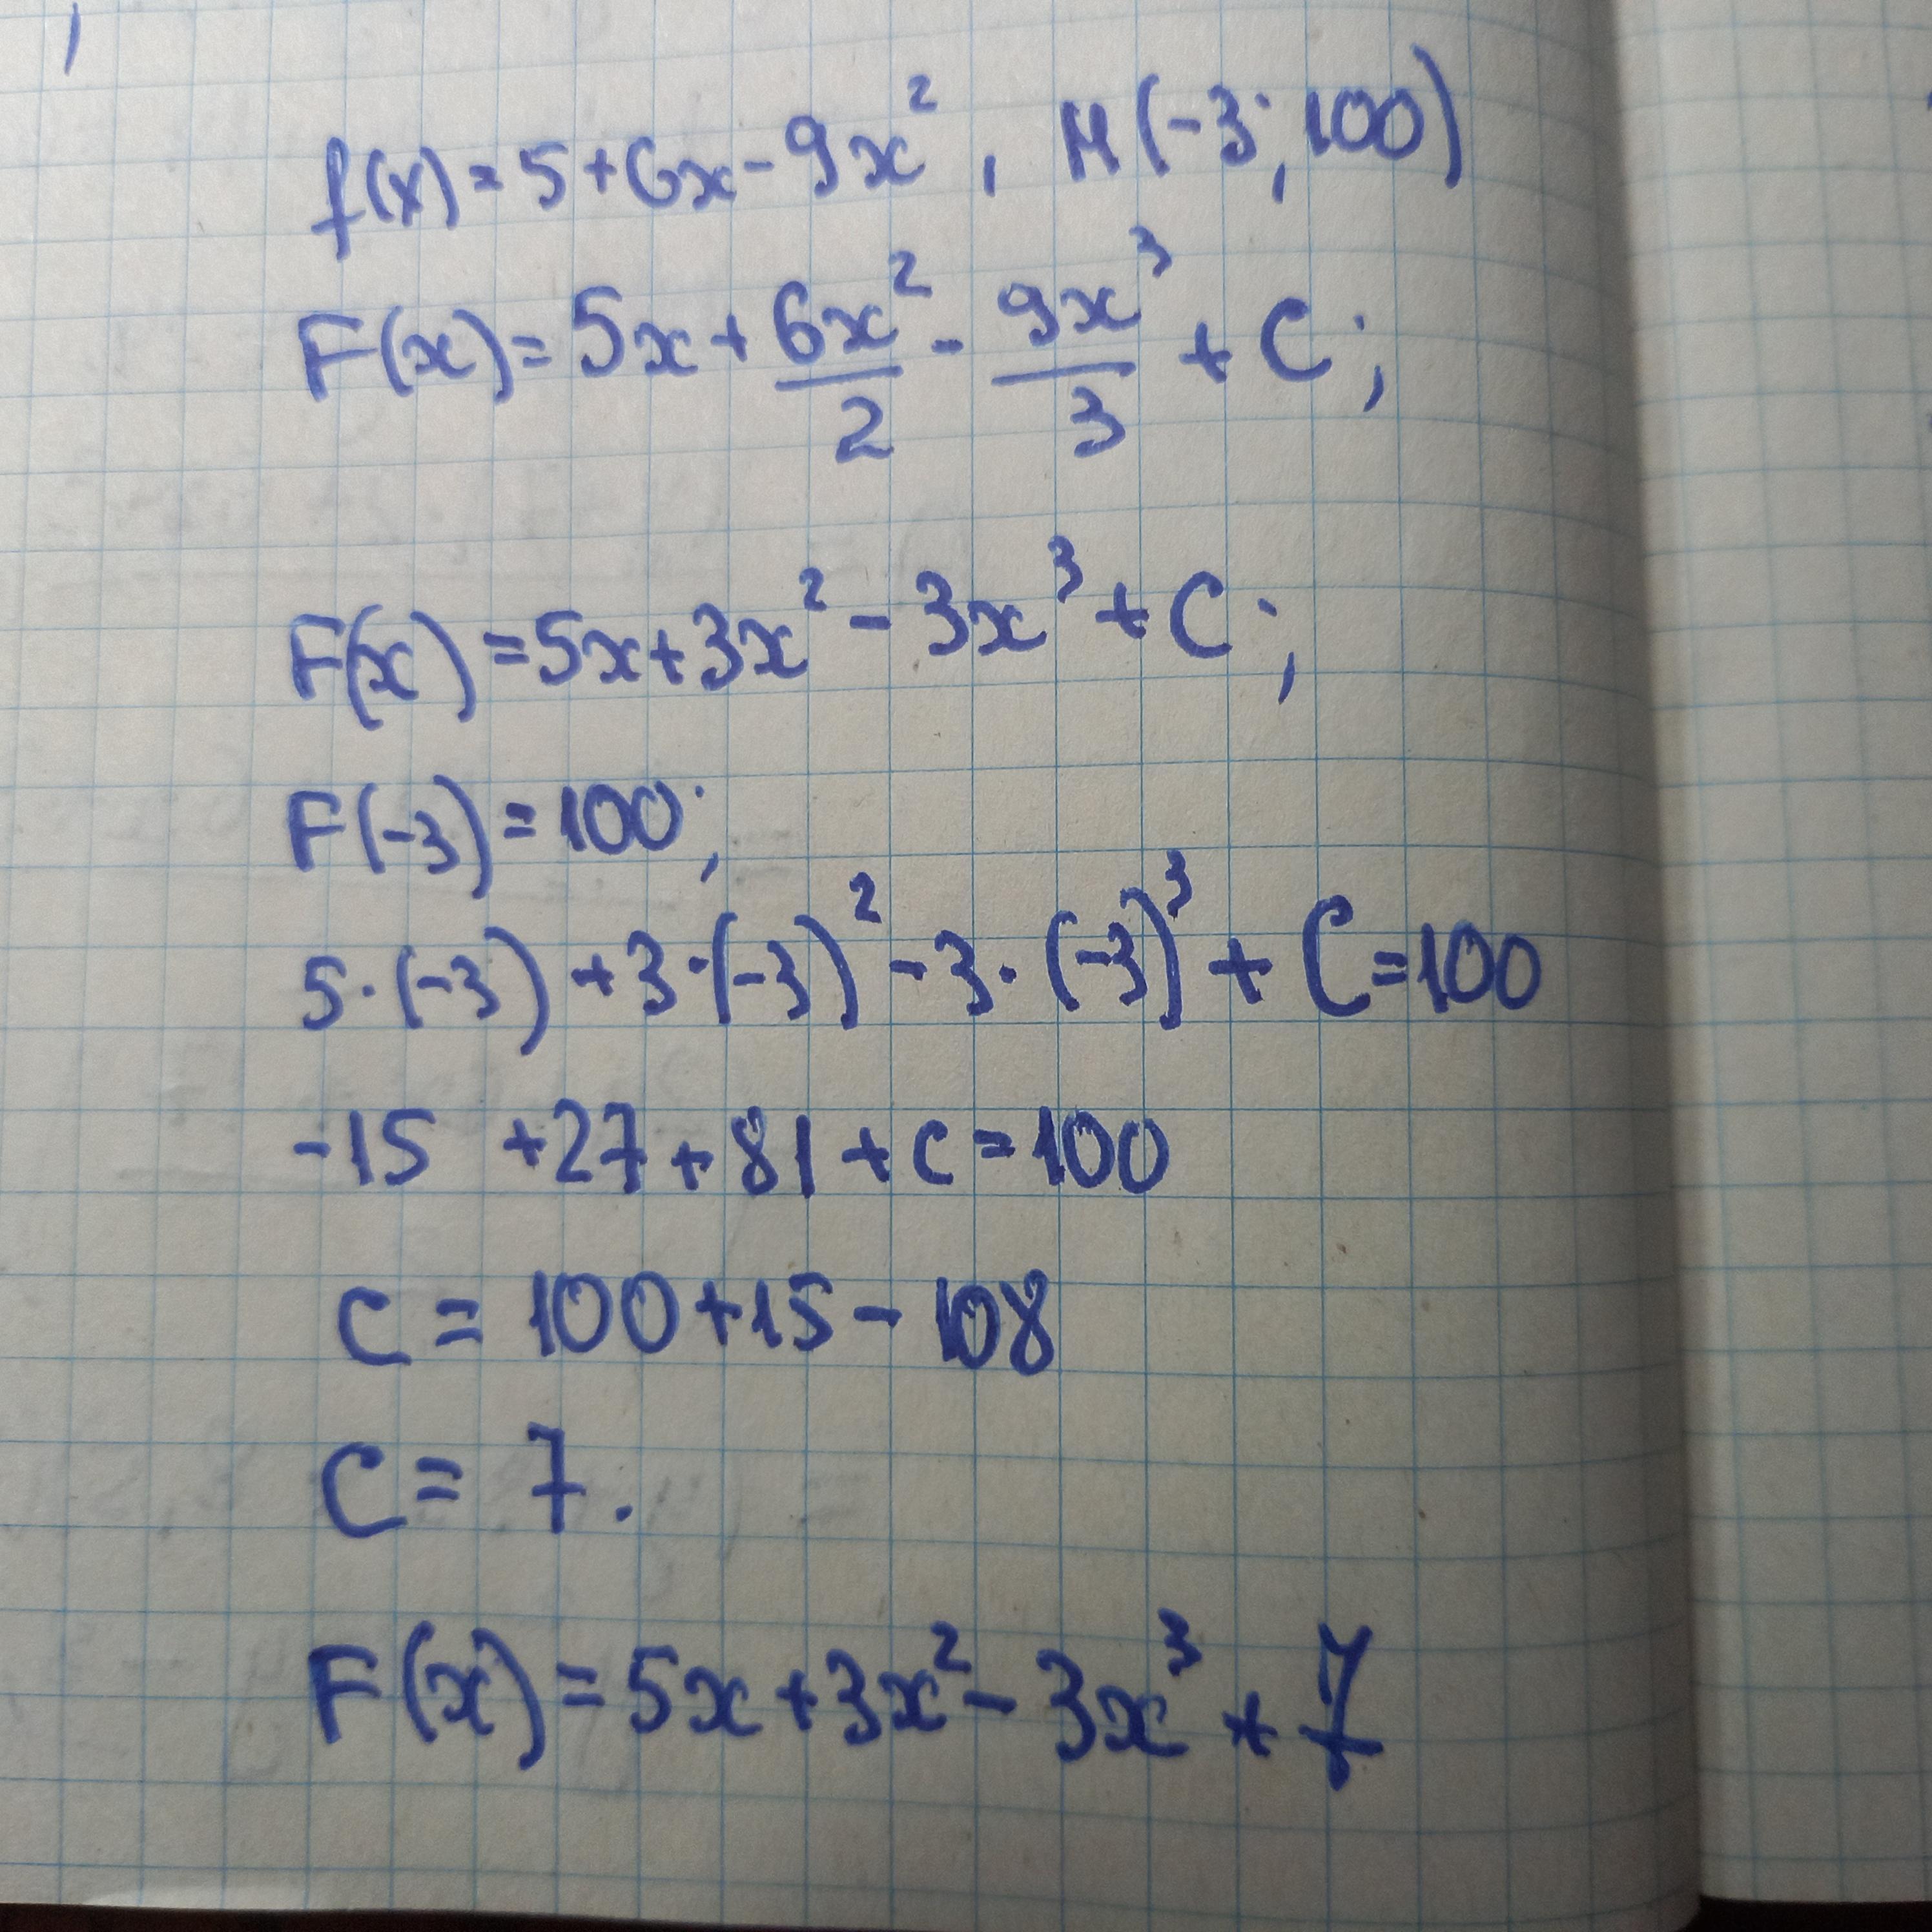 f(x) = 5 + 6x - 9x², M(-3; 100)
F(x) = 5x + 6x²/2 - 9x³/3 + C;
F(x) = 5x + 3x² - 3x³ + C;
F(-3) = 100;
5·(-3) + 3·(-3)² - 3·(-3)³ + C = 100
-15 + 27 + 81 + C = 100
C = 100 + 15 - 108
C = 7.
F(x) = 5x + 3x² - 3x³ + 7